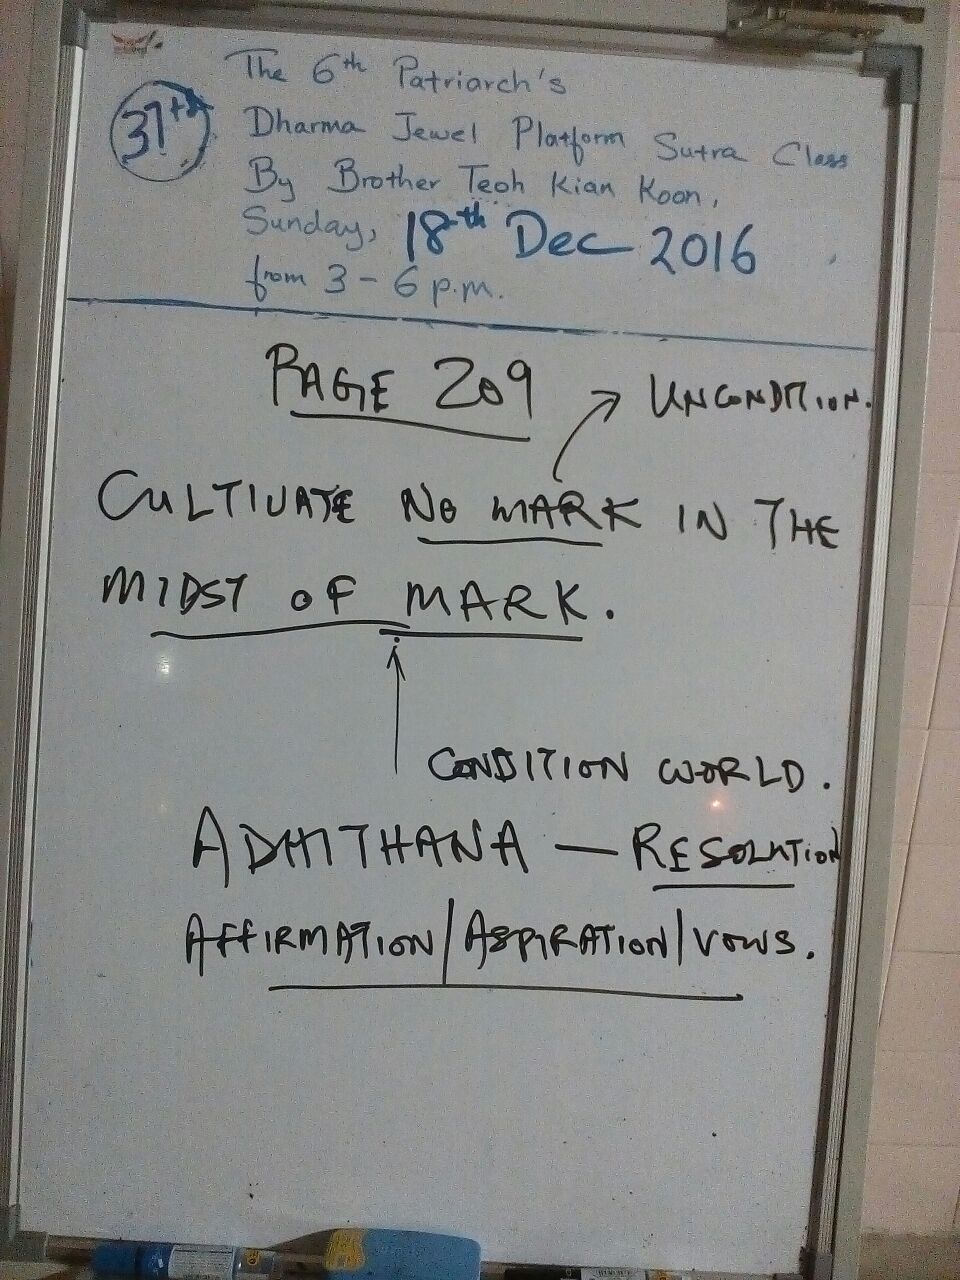 The 6th Patriarch's
37th
Dharma Jewel Platform Sutra Class
By Brother Teoh Kian Koon,
Sunday, 18th Dec 2016
from 3 - 6 p.m.
PAGE 209
UNCONDITION.
CULTIVATE NO MARK IN THE
MIDST OF MARK.
CONDITION WORLD.
ADHITHANA — RESOLUTION
AFFIRMATION/ASPIRATION/VOWS.